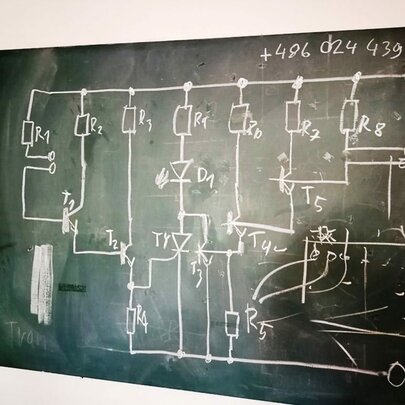 +486 024 439
R1
R2
R3
R6
R7
R8
D1
T1
T5
T2
Ty
T3
T4
R4
R5